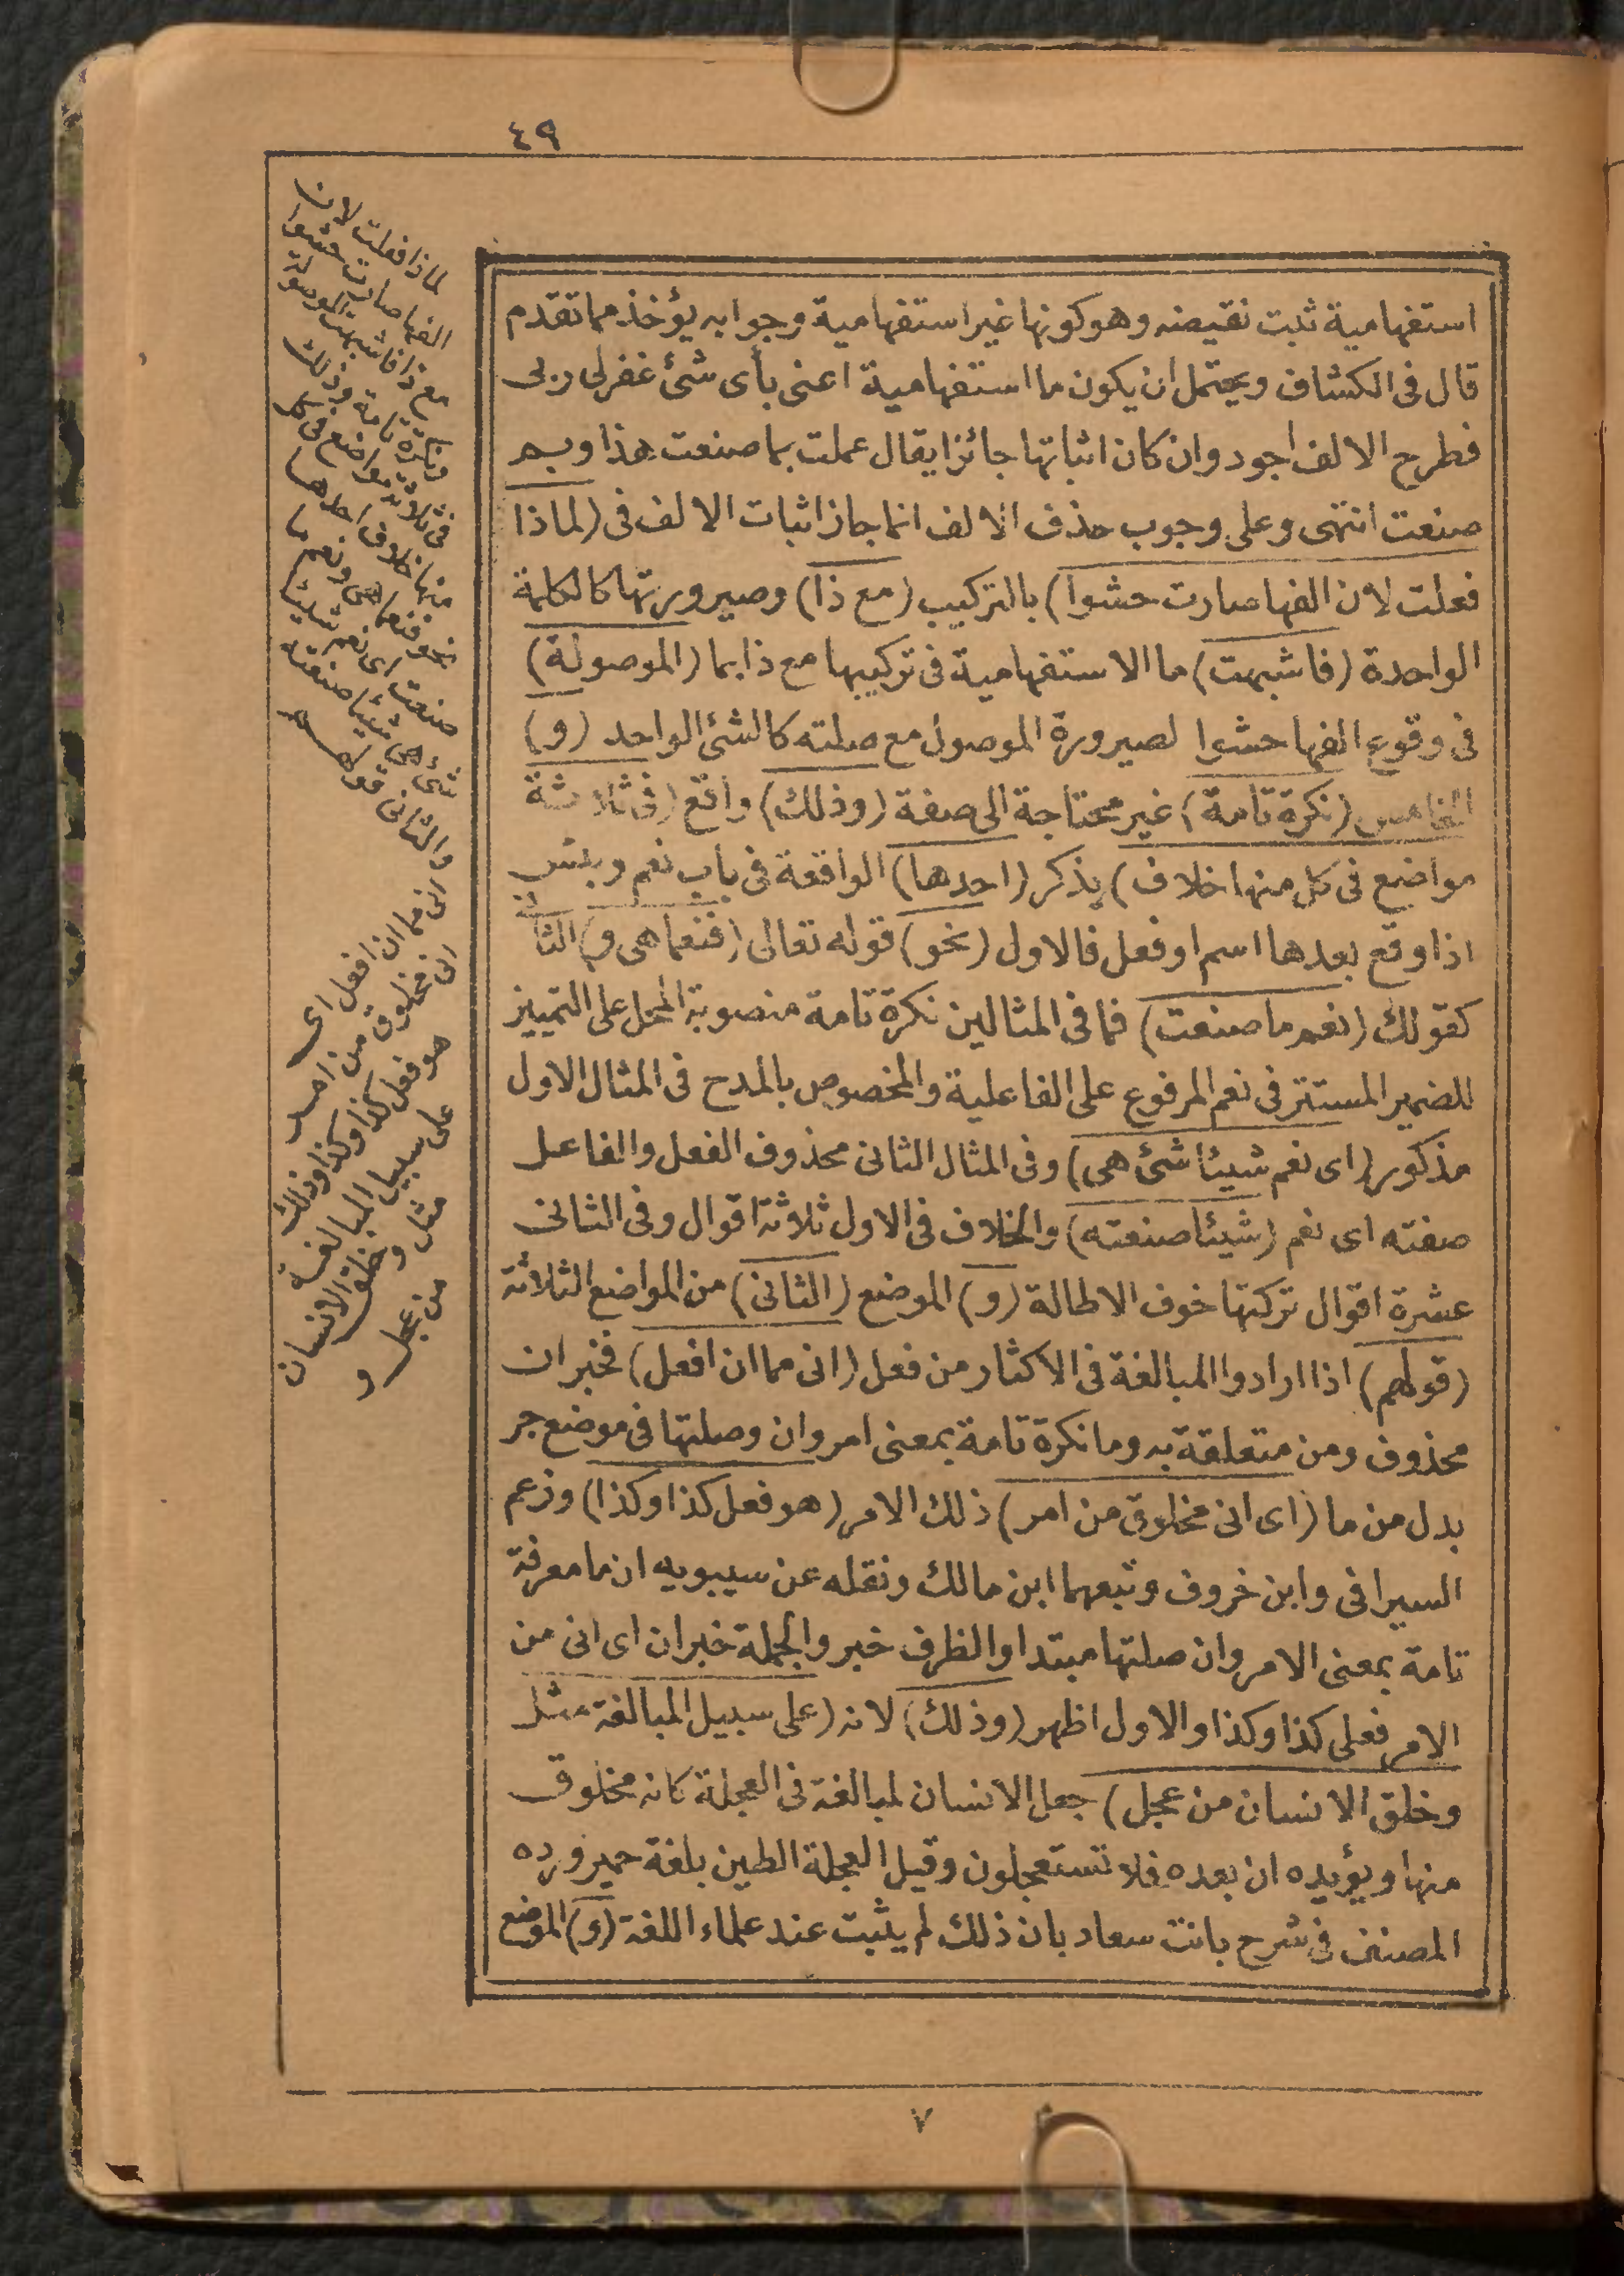 ٤٩
استفهامية ثبت نقيضه وهو كونها غير استفهامية وجوابه يؤخذ مما تقدم
قال فى الكشاف ويحتمل ان يكون ما استفهامية اعنى بأى شئ غفر لى ربى
فطرح الالف اجود وان كان اثباتها جائزا يقال عملت بما صنعت هذا وبم
صنعت انتهى وعلى وجوب حذف الالف انما جاز اثبات الالف فى (لماذا
فعلت لان الفها صارت حشوا) بالتركيب (مع ذا) وصيرورتها كالكلمة
الواحدة (فاشبهت) ما الاستفهامية فى تركيبها مع ذا بما (الموصولة)
فى وقوع الفها حشوا لصيرورة الموصول مع صلته كالشئ الواحد (و)
الخامس (نكرة تامة) غير محتاجة الى صفة (وذلك) واقع (فى ثلاثة
مواضع فى كل منها خلاف) يذكر (احدها) الواقعة فى باب نعم وبئس
اذا وقع بعدها اسم او فعل فالاول (نحو) قوله تعالى (فنعما هى و) الثانى
كقولك (نعم ما صنعت) فما فى المثالين نكرة تامة منصوبة المحل على التمييز
للضمير المستتر فى نعم المرفوع على الفاعلية والمخصوص بالمدح فى المثال الاول
مذكور (اى نعم شيئا شئ هى) وفى المثال الثانى محذوف الفعل والفاعل
صفته اى نعم (شيئا صنعته) والخلاف فى الاول ثلاثة اقوال وفى الثانى
عشرة اقوال تركتها خوف الاطالة (و) الموضع (الثانى) من المواضع الثلاثة
(قولهم) اذا ارادوا المبالغة فى الاكثار من فعل (انى مما ان افعل) فخبر ان
محذوف ومن متعلقة به وما نكرة تامة بمعنى امر وان وصلتها فى موضع جر
بدل من ما (اى انى مخلوق من امر) ذلك الامر (هو فعل كذا وكذا) وزعم
السيرافى وابن خروف وتبعهما ابن مالك ونقله عن سيبويه ان ما معرفة
تامة بمعنى الامر وان صلتها مبتدا والظرف خبر والجملة خبر ان اى انى من
الامر فعلى كذا وكذا والاول اظهر (وذلك) لانه (على سبيل المبالغة مثل
وخلق الانسان من عجل) جعل الانسان لمبالغة فى العجلة كانه مخلوق
منها ويؤيده ان بعده فلا تستعجلون وقيل العجلة الطين بلغة حمير ورده
المصنف فى شرح بانت سعاد بان ذلك لم يثبت عند علماء اللغة (و) الموضع
لماذا فعلت لان
الفها صارت حشوا
مع ذا فاشبهت الموصولة
ونكرة تامة وذلك
فى ثلاثة مواضع فى كل
منها خلاف احدها
نحو فنعما هى ونعم ما
صنعت اى نعم شيئا
شئ هى شيئا صنعته
والثانى قولهم
انى مما ان افعل اى
انى مخلوق من امر
هو فعل كذا وكذا وذلك
على سبيل المبالغة
مثل وخلق الانسان
من عجل و
٧